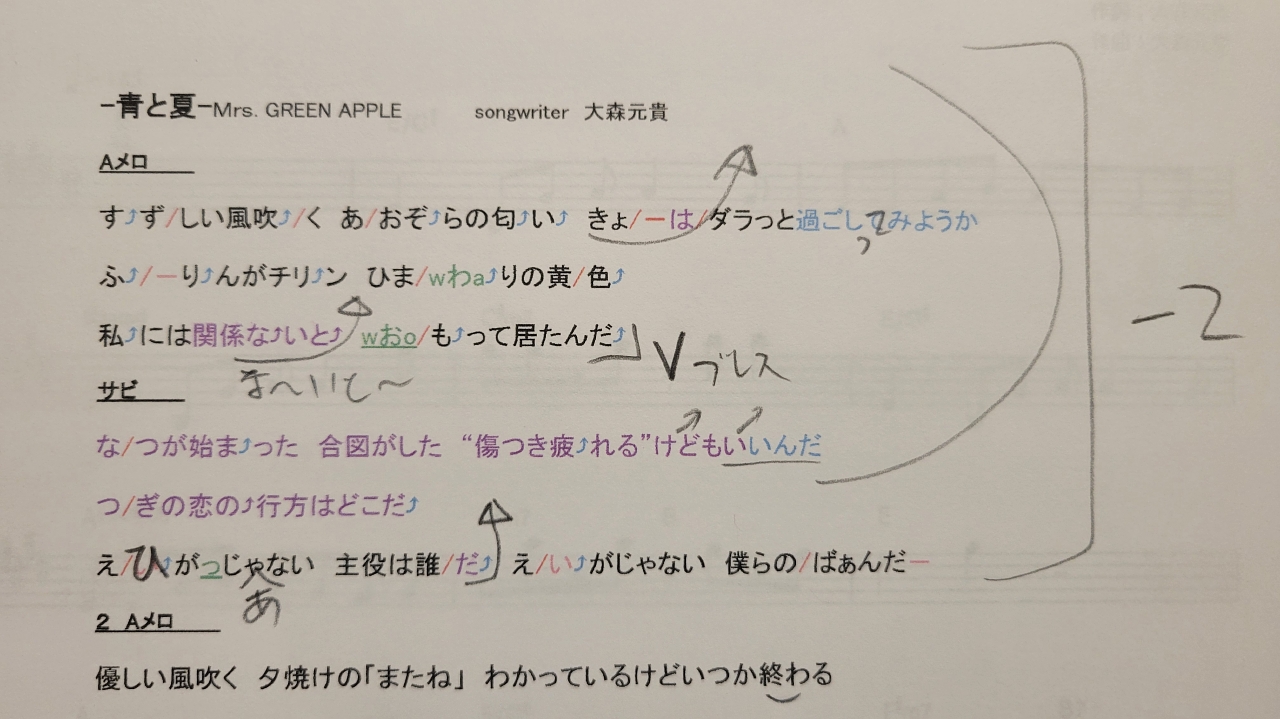 -青と夏-Mrs. GREEN APPLE songwriter 大森元貴
Aメロ
す⤴ず/しい風吹⤴/く あ/おぞ⤴らの匂⤴い⤴ きょ/ーは/ダラっと過ごしてみようか
っ
ふ⤴/ーり⤴んがチリ⤴ン ひま/wわa⤴りの黄/色⤴
私⤴には関係な⤴いと⤴ wおo/も⤴って居たんだ⤴
V ブレス
な〜いと〜
-2
サビ
な/つが始ま⤴った 合図がした “傷つき疲⤴れる”けどもいいんだ
つ/ぎの恋の⤴行方はどこだ⤴
え/ひ⤴がっじゃない 主役は誰/だ⤴ え/い⤴がじゃない 僕らの/ばぁんだー
あ
2 Aメロ
優しい風吹く 夕焼けの「またね」 わかっているけどいつか終わる